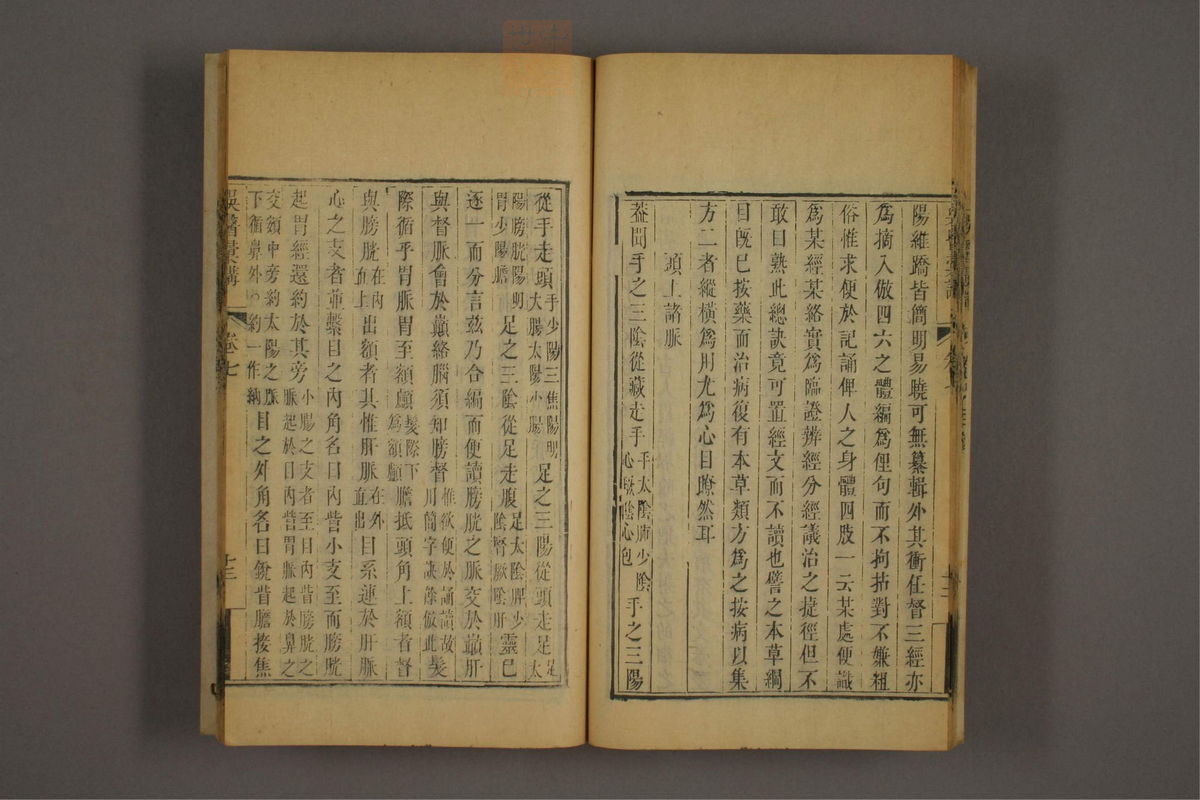 陽維蹻皆簡明易曉可無纂輯外其衝任督三經亦
爲摘入倣四六之體編爲俚句而不拘拈對不嫌粗
俗惟求便於記誦俾人之身體四肢一云某處便識
爲某經某絡實爲臨證辨經分經議治之捷徑但不
敢曰熟此總訣竟可置經文而不讀也譬之本草綱
目既已按藥而治病復有本草類方爲之按病以集
方二者縱橫爲用尤爲心目暸然耳
頭上諸脈
蓋聞手之三陰從藏走手手太陰肺少陰心厥陰心包手之三陽
從手走頭手少陽三焦陽明大腸太陽小腸足之三陽從頭走足足太
陽膀胱陽明胃少陽膽足之三陰從足走腹足太陰脾少陰腎厥陰肝靈已
逐一而分言茲乃合編而便讀膀胱之脈交於巔肝
與督脈會於巔絡腦須知膀督惟欲便於誦讀故用簡字訣餘倣此髮
際循乎胃脈胃至額顱髮際下爲額顱膽抵頭角上額者督
與膀胱在內直上出額者其惟肝脈在外直出目系連於肝脈
心之支者並繫目之內角名曰內眥小支至而膀胱
起胃經還約於其旁小腸之支者至目內眥膀胱之脈起於目內眥胃脈起於鼻之
交頞中旁約太陽之脈下循鼻外約一作納目之外角名曰銳眥膽接焦
吳醫彙講
卷七
十三